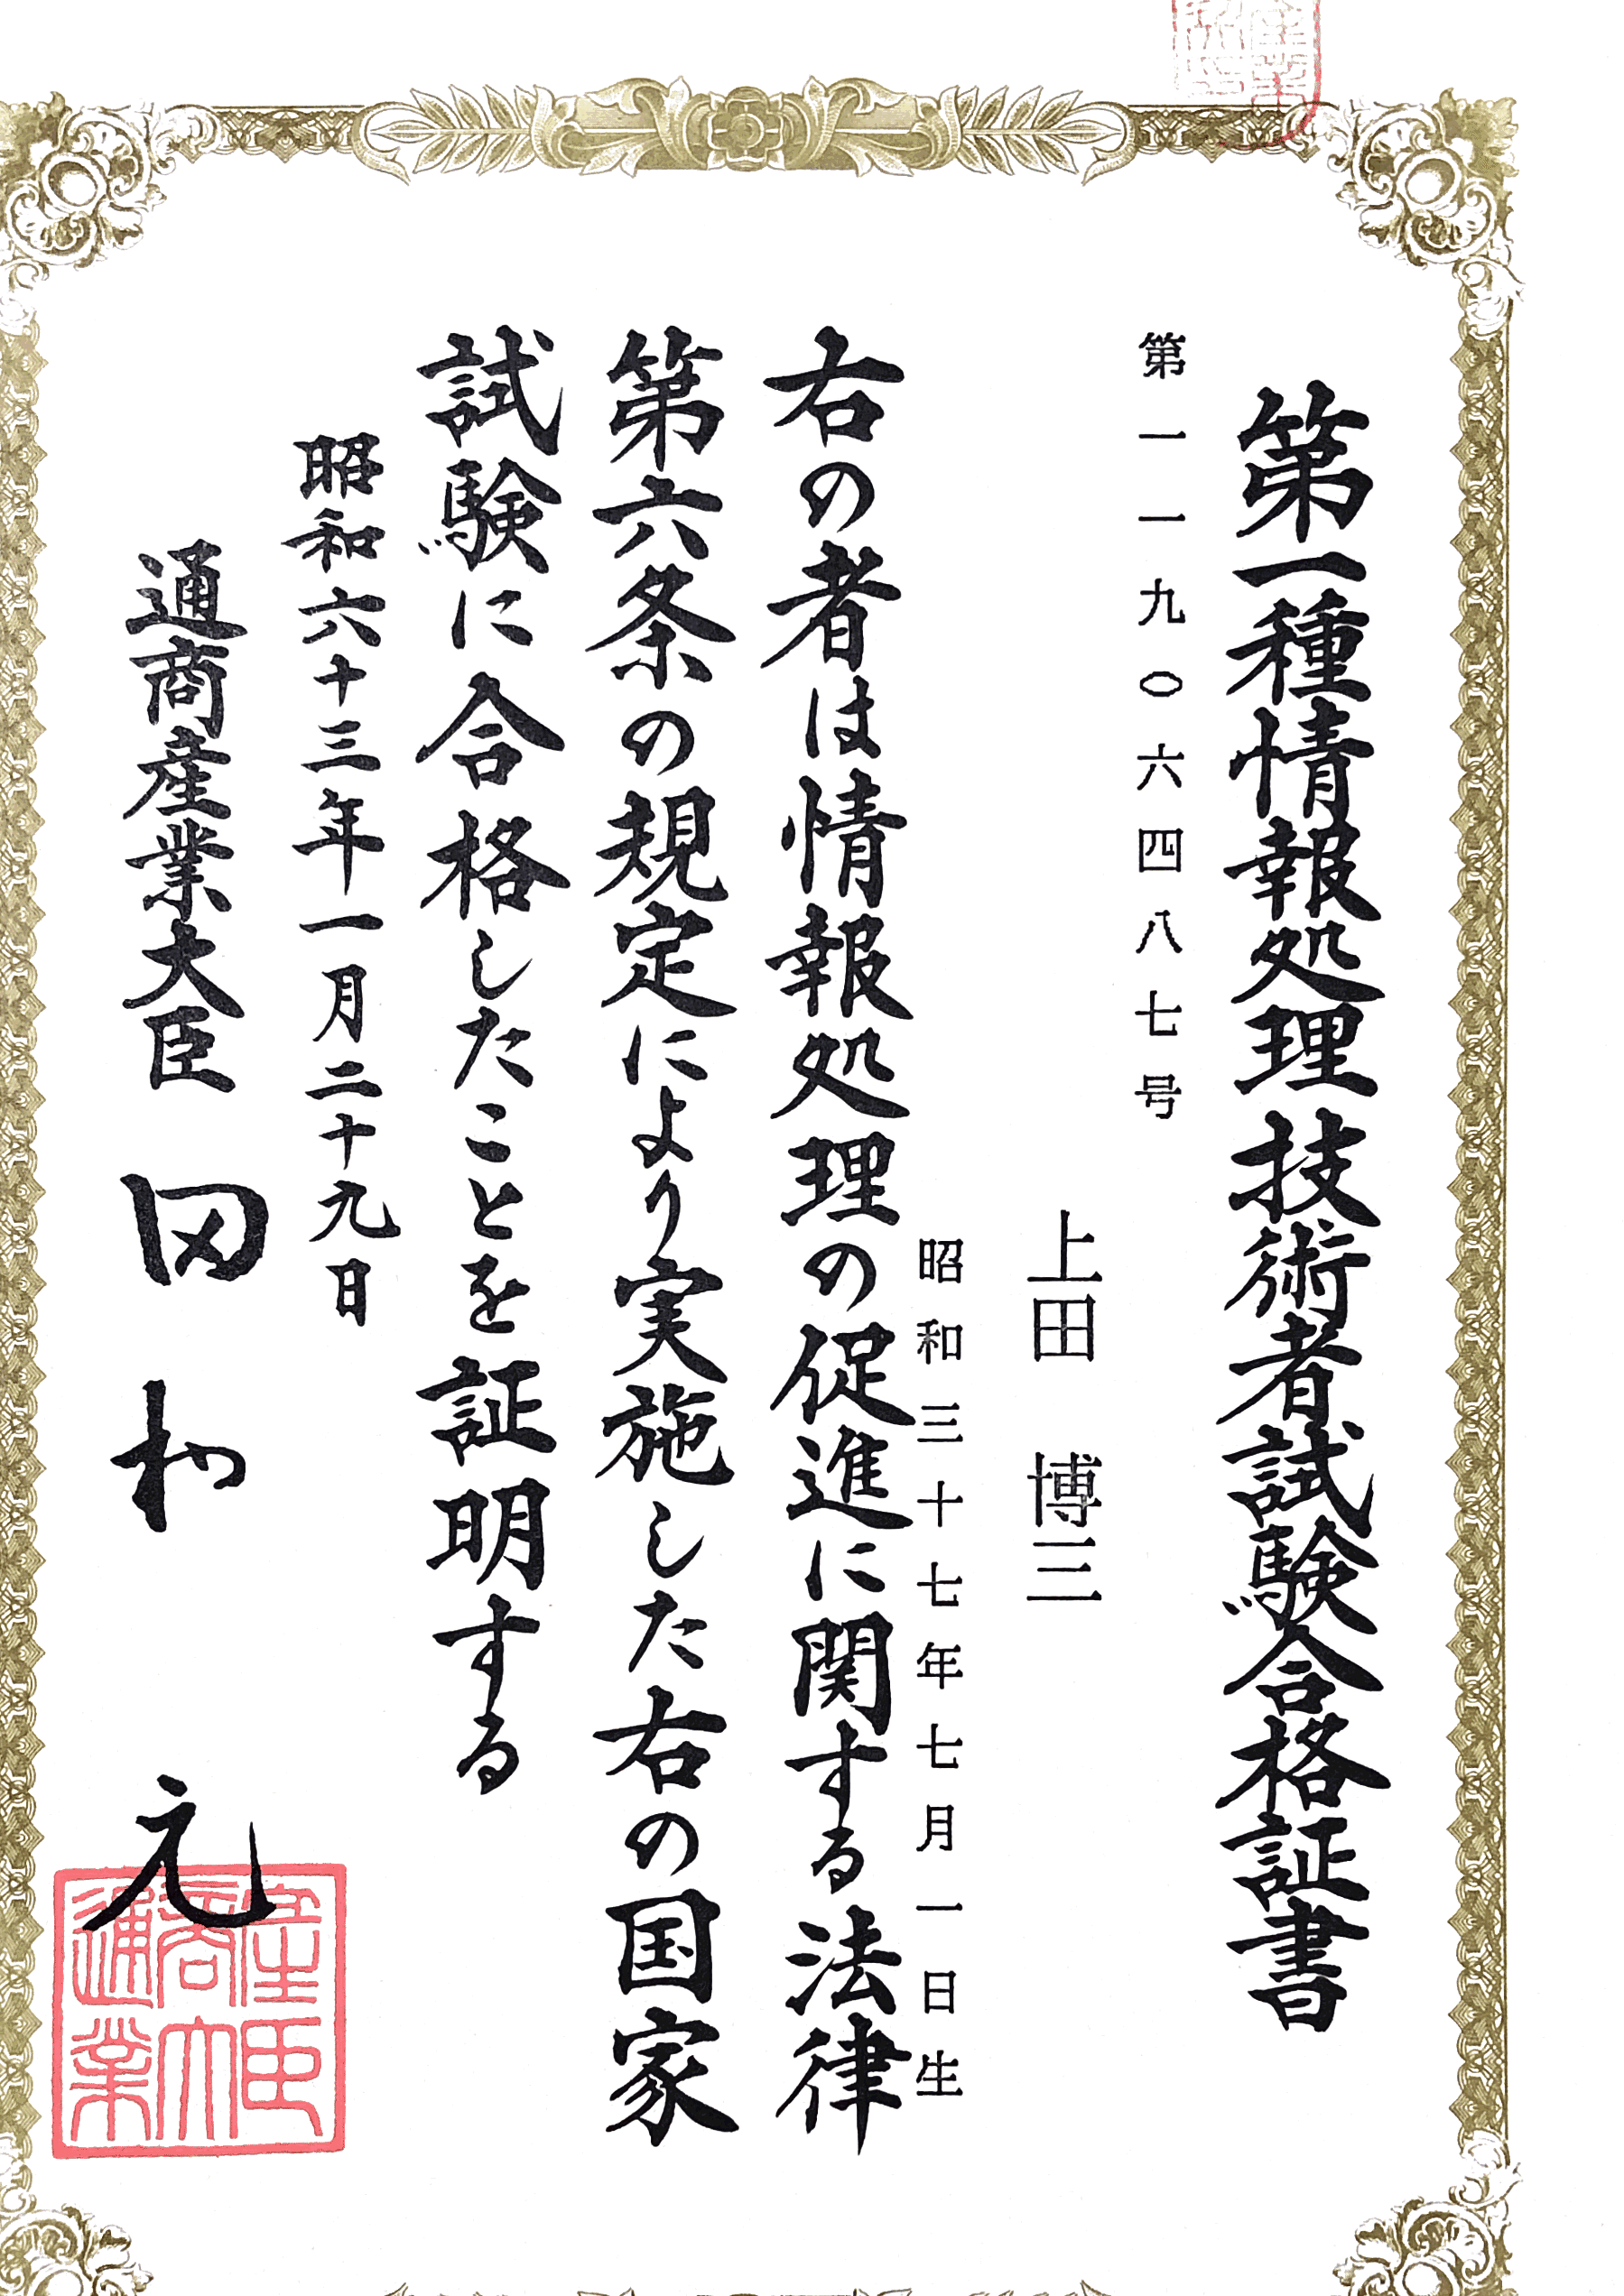 第一種情報処理技術者試験合格証書
第一一九〇六四八七号
上田 博三
昭和三十七年七月一日生
右の者は情報処理の促進に関する法律
第六条の規定により実施した右の国家
試験に合格したことを証明する
昭和六十三年一月二十九日
通商産業大臣 田村 元
通商産業大臣